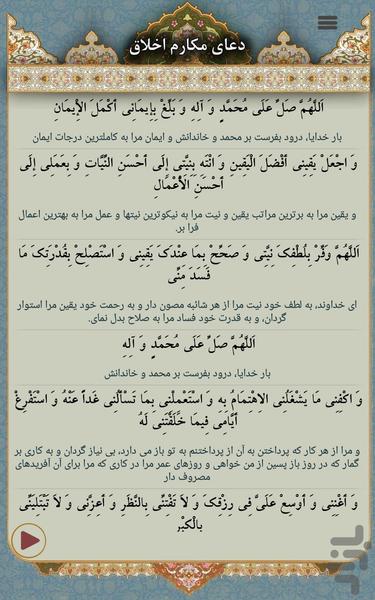 دعای مکارم اخلاق
اَللَّهُمَّ صَلِّ عَلَى مُحَمَّدٍ وَ آلِهِ وَ بَلِّغْ بِإِيمَانِي أَكْمَلَ الْإِيمَانِ
بار خدایا، درود بفرست بر محمد و خاندانش و ایمان مرا به کاملترین درجات ایمان
وَ اجْعَلْ يَقِينِي أَفْضَلَ الْيَقِينِ وَ انْتَهِ بِنِيَّتِي إِلَى أَحْسَنِ النِّيَّاتِ وَ بِعَمَلِي إِلَى
أَحْسَنِ الْأَعْمَالِ
و یقین مرا به برترین مراتب یقین و نیت مرا به نیکوترین نیتها و عمل مرا به بهترین اعمال
فرا بر.
اَللَّهُمَّ وَفِّرْ بِلُطْفِكَ نِيَّتِي وَ صَحِّحْ بِمَا عِنْدَكَ يَقِينِي وَ اسْتَصْلِحْ بِقُدْرَتِكَ مَا
فَسَدَ مِنِّي
ای خداوند، به لطف خود نیت مرا از هر شائبه مصون دار و به رحمت خود یقین مرا استوار
گردان، و به قدرت خود فساد مرا به صلاح بدل نمای.
اَللَّهُمَّ صَلِّ عَلَى مُحَمَّدٍ وَ آلِهِ
بار خدایا، درود بفرست بر محمد و خاندانش
وَ اكْفِنِي مَا يَشْغَلُنِي الِاهْتِمَامُ بِهِ وَ اسْتَعْمِلْنِي بِمَا تَسْأَلُنِي غَداً عَنْهُ وَ اسْتَفْرِغْ
أَيَّامِي فِيمَا خَلَقْتَنِي لَهُ
و مرا از هر کار که پرداختن به آن از پرداختنم به تو باز می دارد، بی نیاز گردان و به کاری بر
گمار که در روز باز پسین از من خواهی و روزهای عمر مرا در کاری که مرا برای آن آفریده‌ای
مصروف دار
وَ أَغْنِنِي وَ أَوْسِعْ عَلَيَّ فِي رِزْقِكَ وَ لَا تَفْتِنِّي بِالنَّظَرِ وَ أَعِزَّنِي وَ لَا تَبْتَلِيَنِّي
بِالْكِبْرِ
بازار